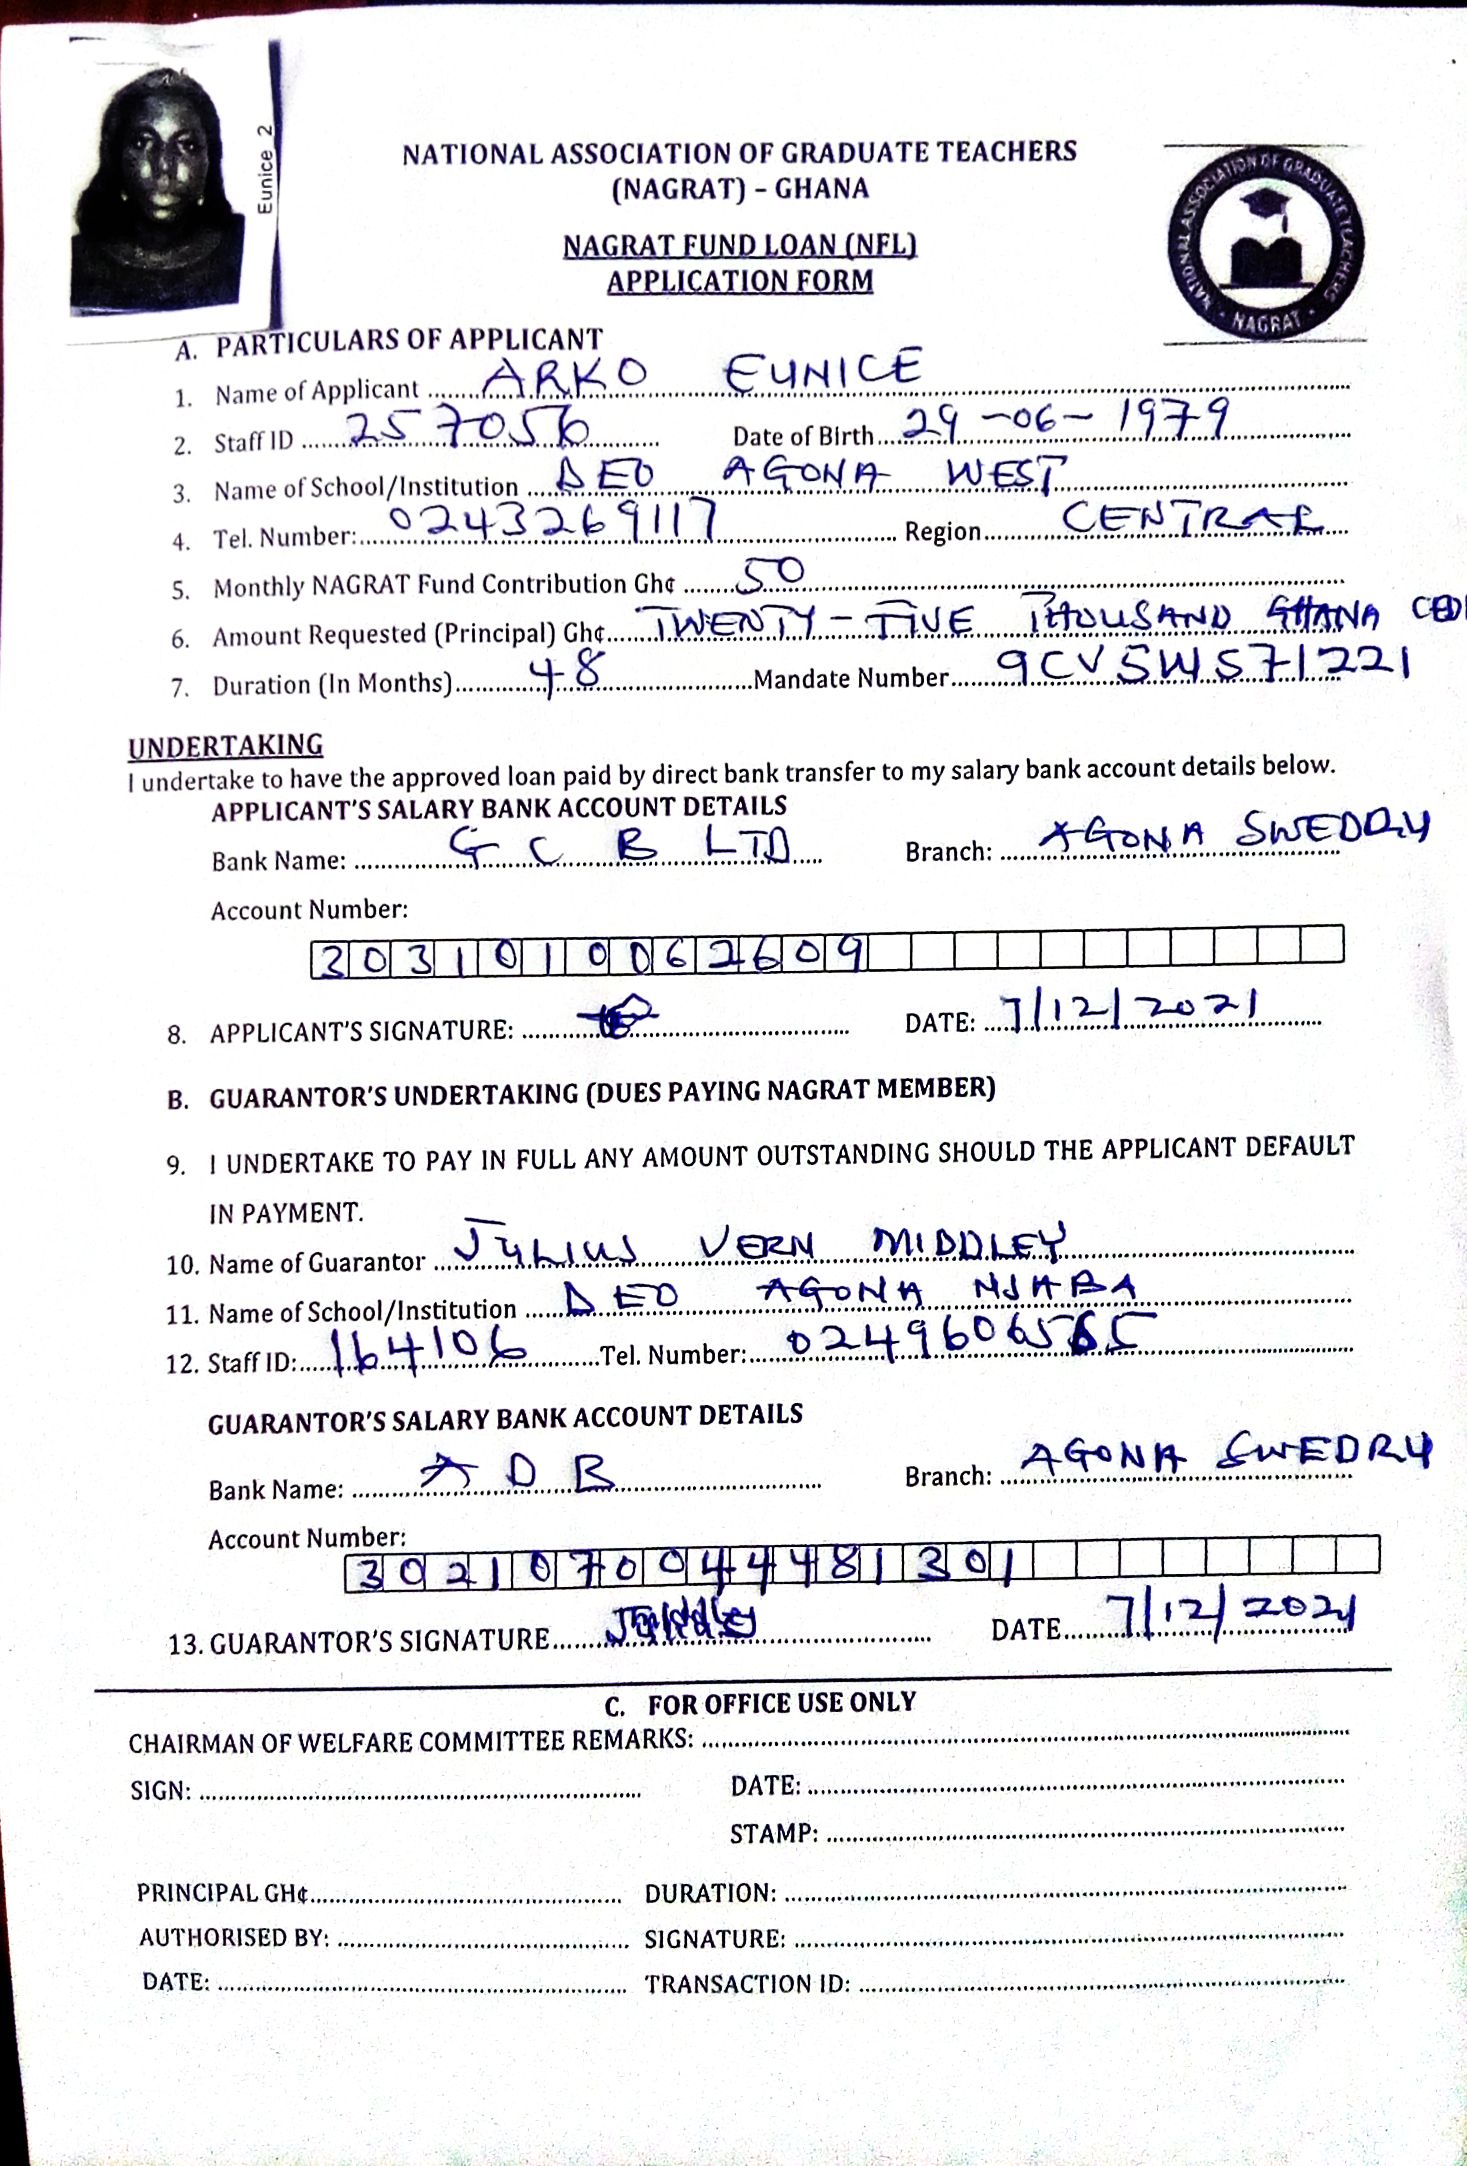 Eunice 2
NATIONAL ASSOCIATION OF GRADUATE TEACHERS
(NAGRAT) – GHANA
NATIONAL ASSOCIATION OF GRADUATE TEACHERS
· NAGRAT ·
NAGRAT FUND LOAN (NFL)
APPLICATION FORM
A. PARTICULARS OF APPLICANT
1. Name of Applicant ARKO EUNICE
2. Staff ID 257056 Date of Birth 29-06-1979
3. Name of School/Institution DEO AGONA WEST
4. Tel. Number: 0243269117 Region CENTRAL
5. Monthly NAGRAT Fund Contribution Gh¢ 50
6. Amount Requested (Principal) Gh¢ TWENTY-FIVE THOUSAND GHANA CEDI
7. Duration (In Months) 48 Mandate Number 9CV5WS71221
UNDERTAKING
I undertake to have the approved loan paid by direct bank transfer to my salary bank account details below.
APPLICANT'S SALARY BANK ACCOUNT DETAILS
Bank Name: G C B LTD Branch: AGONA SWEDRU
Account Number:
3031010062609
8. APPLICANT'S SIGNATURE: DATE: 7/12/2021
B. GUARANTOR'S UNDERTAKING (DUES PAYING NAGRAT MEMBER)
9. I UNDERTAKE TO PAY IN FULL ANY AMOUNT OUTSTANDING SHOULD THE APPLICANT DEFAULT
IN PAYMENT.
10. Name of Guarantor JULIUS VERN MIDDLEY
11. Name of School/Institution DEO AGONA NSABA
12. Staff ID: 164106 Tel. Number:
GUARANTOR'S SALARY BANK ACCOUNT DETAILS
Bank Name: A D B Branch: AGONA SWEDRU
Account Number:
3021070044481301
13. GUARANTOR'S SIGNATURE DATE 7/12/2021
C. FOR OFFICE USE ONLY
CHAIRMAN OF WELFARE COMMITTEE REMARKS:
SIGN: DATE:
STAMP:
PRINCIPAL GH¢ DURATION:
AUTHORISED BY: SIGNATURE:
DATE: TRANSACTION ID: